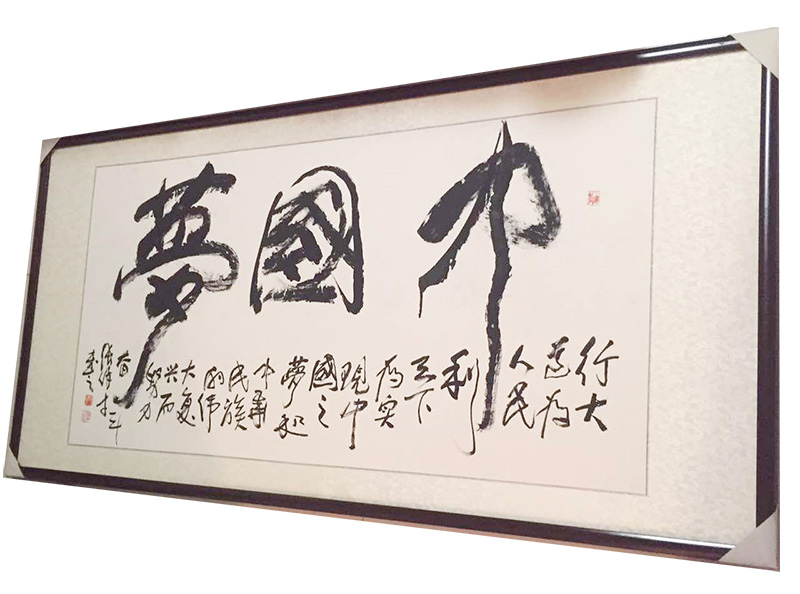 中國夢
行大
道為
人民
利
天下
為实
現中
國之
夢和
中華
民族
的伟
大復
兴而
努力